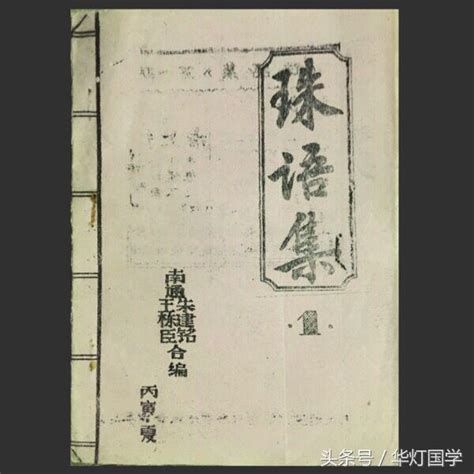 珠语集
·1·
南通朱建铭
王栋臣合编
丙寅·夏
头条号／华灯国学